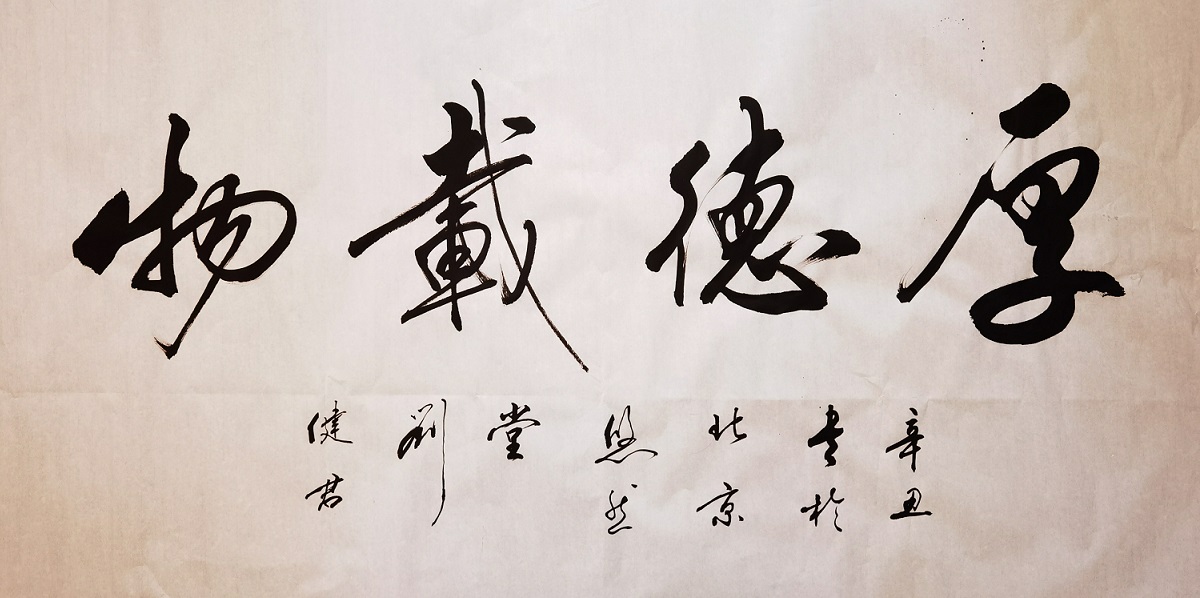 厚德載物
辛丑
書於
北京
悠然
堂
劉
健君